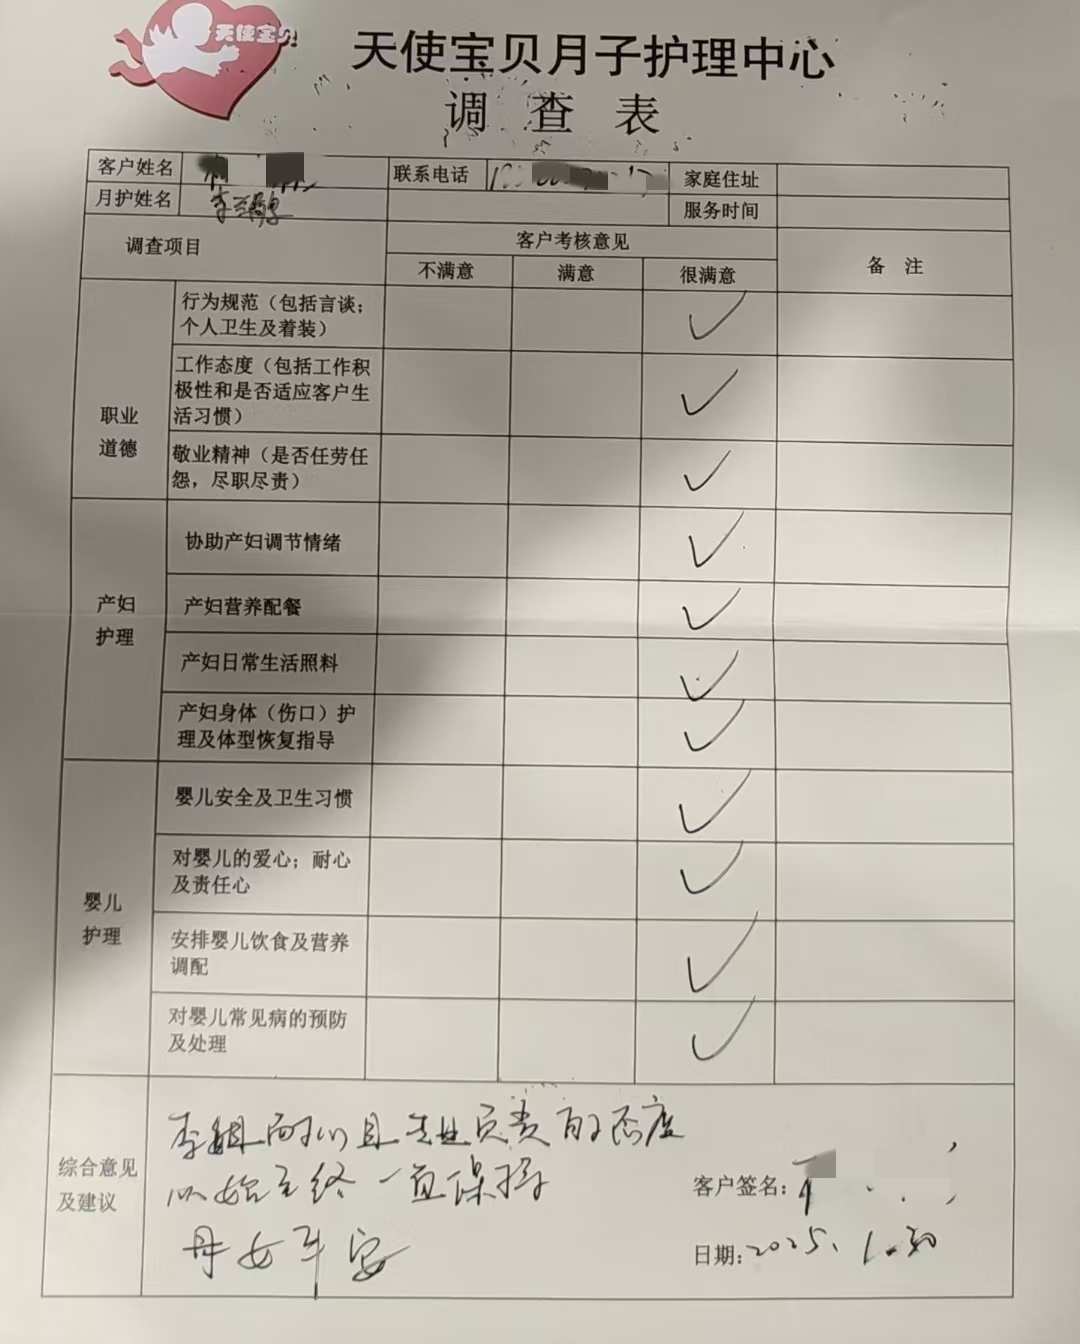 天使宝贝
天使宝贝月子护理中心
调查表
客户姓名 联系电话 家庭住址
月护姓名 李 服务时间
调查项目 客户考核意见 备 注
不满意 满意 很满意
职业
道德
行为规范（包括言谈；
个人卫生及着装） ✓
工作态度（包括工作积
极性和是否适应客户生
活习惯） ✓
敬业精神（是否任劳任
怨，尽职尽责） ✓
产妇
护理
协助产妇调节情绪 ✓
产妇营养配餐 ✓
产妇日常生活照料 ✓
产妇身体（伤口）护
理及体型恢复指导 ✓
婴儿
护理
婴儿安全及卫生习惯 ✓
对婴儿的爱心；耐心
及责任心 ✓
安排婴儿饮食及营养
调配 ✓
对婴儿常见病的预防
及处理 ✓
综合意见
及建议
李姐 专业负责的态度
从始至终一直保持
母女平安
客户签名：
日期：2025.1.30